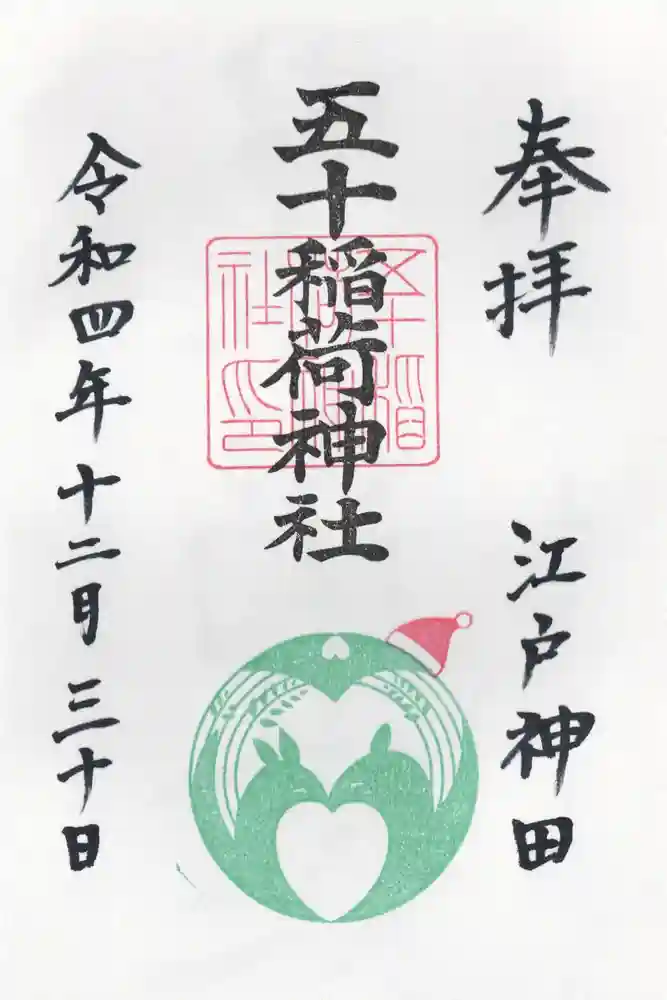 奉拝
江戸神田
五十稲荷神社
令和四年十二月三十日